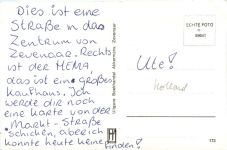 Dies ist eine
Straße in das
Zentrum von
Zevenaar. Rechts
ist der HEMA,
das ist ein großes
Kaufhaus. Ich
werde dir noch
eine Karte von der
Markt-Straße
schicken, aber ich
konnte heute keine finden!
Ute!
Holland
ECHTE FOTO
173